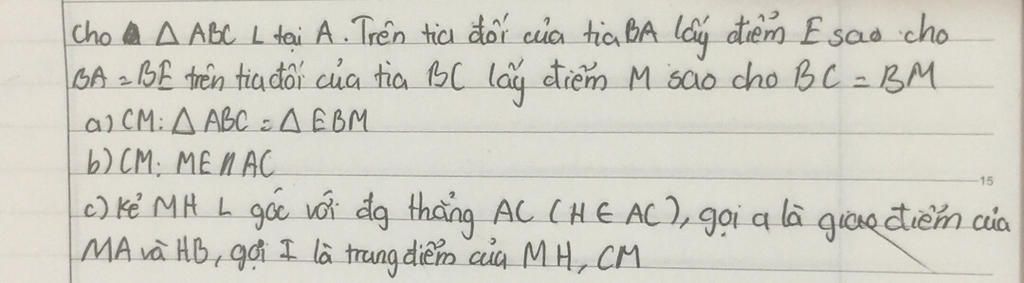 Cho Δ ABC L tại A. Trên tia đối của tia BA lấy điểm E sao cho
BA = BE trên tia đối của tia BC lấy điểm M sao cho BC = BM
a) CM: Δ ABC = Δ EBM
b) CM: ME // AC
15
c) Kẻ MH L góc với đg thẳng AC (H ∈ AC), gọi q là giao điểm của
MA và HB, gọi I là trung điểm của MH, CM